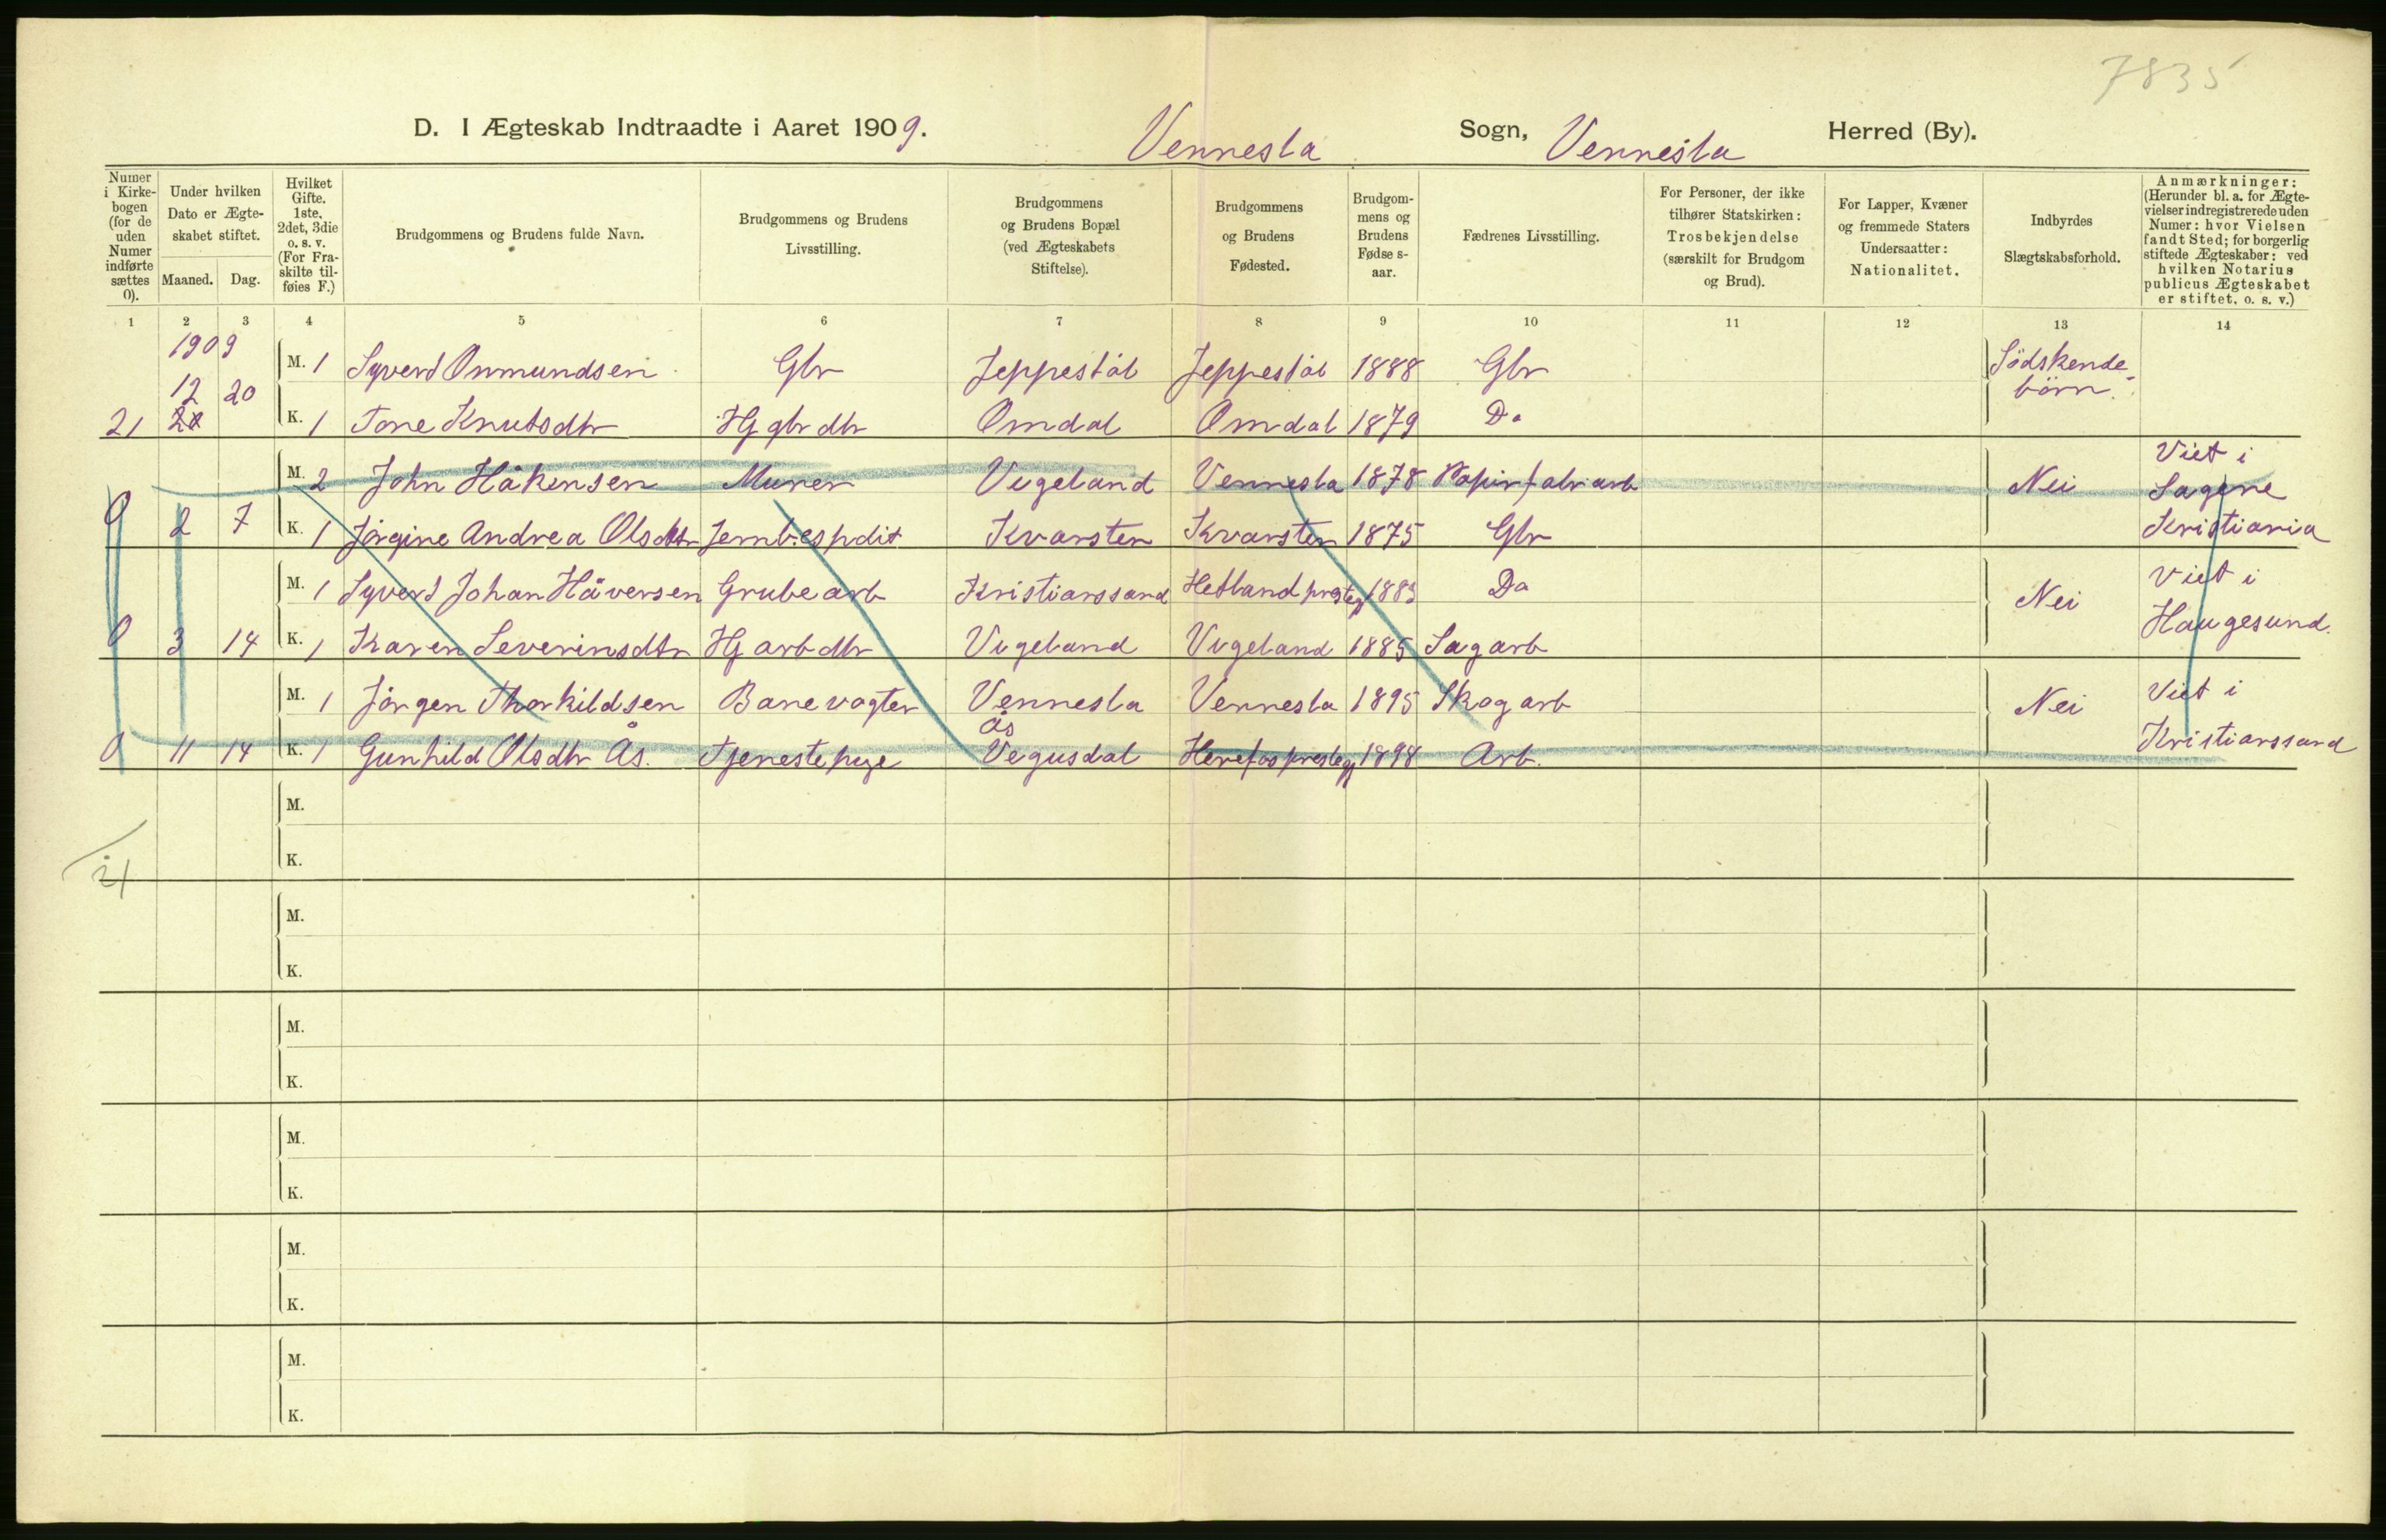 7835
D. I Ægteskab Indtraadte i Aaret 1909. Vennesla Sogn, Vennesla Herred (By).
Numer i Kirkebogen (for de uden Numer indførte sættes 0).
Under hvilken Dato er Ægteskabet stiftet.
Maaned. Dag.
Hvilket Gifte. 1ste, 2det, 3die o. s. v. (For Fraskilte tilføies F.)
Brudgommens og Brudens fulde Navn.
Brudgommens og Brudens Livsstilling.
Brudgommens og Brudens Bopæl (ved Ægteskabets Stiftelse).
Brudgommens og Brudens Fødested.
Brudgommens og Brudens Fødselsaar.
Fædrenes Livsstilling.
For Personer, der ikke tilhører Statskirken: Trosbekjendelse (særskilt for Brudgom og Brud).
For Lapper, Kvæner og fremmede Staters Undersaatter: Nationalitet.
Indbyrdes Slægtskabsforhold.
Anmærkninger: (Herunder bl. a. for Ægtevielser indregistrerede uden Numer: hvor Vielsen fandt Sted; for borgerlig stiftede Ægteskaber: ved hvilken Notarius publicus Ægteskabet er stiftet, o. s. v.)
1 2 3 4 5 6 7 8 9 10 11 12 13 14
1909
M. 1 Syvert Onmundsen Gbr Jeppestøl Jeppestøl 1888 Gbr Södskende-
12 20 börn.
21 K. 1 Tone Knutsdtr Hj gbr dtr Omdal Omdal 1879 Do
M. 2 John Håkensen Murer Vigeland Vennesla 1878 Papirfabr arb Nei Viet i Sagene
0 2 7 K. 1 Jørgine Andrea Olsdtr Jernb.espdit Kvarsten Kvarsten 1875 Gbr Kristiania
M. 1 Syvert Johan Håversen Grubearb Kristianssand Hetland prestegj 1883 Do Nei Viet i
0 3 14 K. 1 Karen Severinsdtr Hj arb dtr Vigeland Vigeland 1885 Sagarb Haugesund.
M. 1 Jørgen Thorkildsen Banevogter Vennesla Vennesla 1895 Skogarb Nei Viet i
Ås
0 11 14 K. 1 Gunhild Olsdtr Ås. Tjenestepige Vegusdal Herefos prestegj 1898 Arb. Kristianssand
M.
K.
21
M.
K.
M.
K.
M.
K.
M.
K.
M.
K.